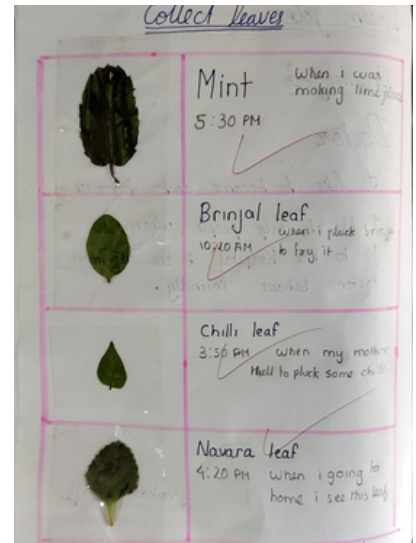 Collect leaves
Mint
When i was
making lime
5:30 PM
Brinjal leaf
10:20 AM
when i pluck
to fry it
Chilli leaf
3:50 PM
when my mother
tell to pluck some
Navara leaf
4:20 PM
when i going to
home i see this leaf